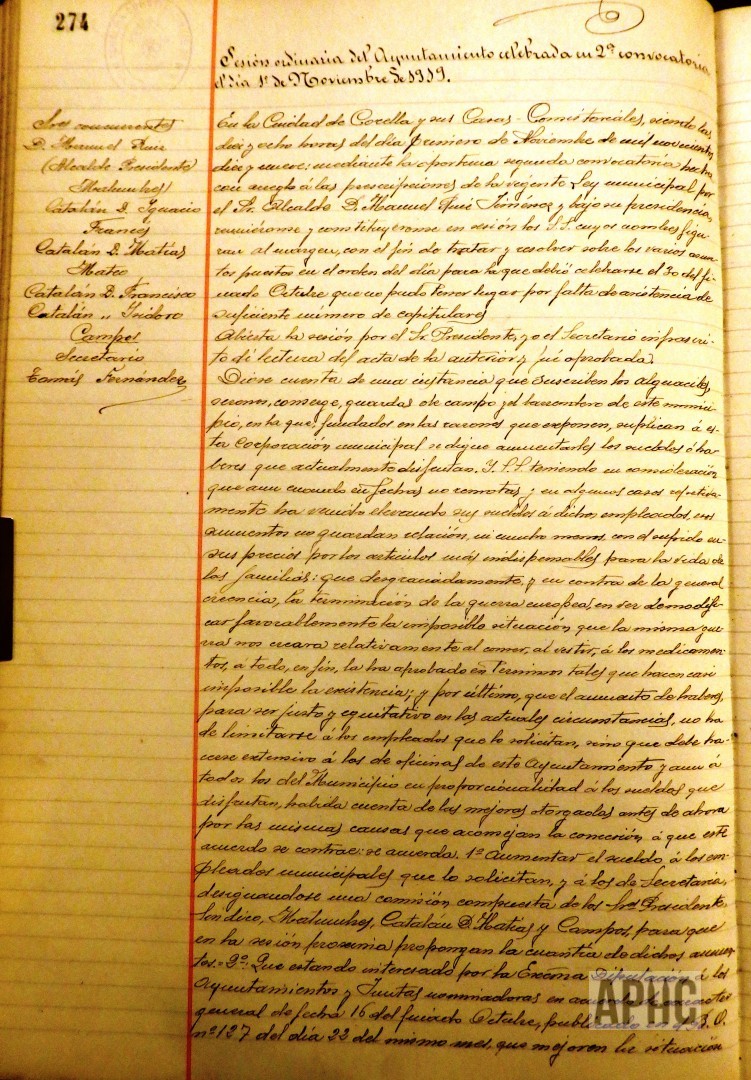 274
Sesión ordinaria del Ayuntamiento celebrada en 2ª convocatoria
el día 1º de Noviembre de 1919.
Sres concurrentes
D. Manuel Ruiz
(Alcalde Presidente)
Catalán D. Ignacio
Francés
Catalán D. Matías
Mateo
Catalán D. Francisco
Catalán " Isidoro
Campos
Secretario
Tomás Fernández
En la Ciudad de Corella y sus Casas Consistoriales, siendo las
diez y ocho horas del día primero de Noviembre de mil novecientos
diez y nueve: mediante la oportuna segunda convocatoria hecha
con arreglo á las prescripciones de la vigente Ley municipal por
el Sr. Alcalde D. Manuel Ruiz Jiménez y bajo su presidencia,
reuniéronse y constituyéronse en sesión los S.S. cuyos nombres figu-
ran al margen, con el fin de tratar y resolver sobre los varios asun-
tos puestos en el orden del día para la que debió celebrarse el 30 del fi-
nado Octubre que no pudo tener lugar por falta de asistencia de
suficiente número de capitulares.
Abierta la sesión por el Sr. Presidente, yo el Secretario infrascri-
to dí lectura del acta de la anterior y fué aprobada.
Diose cuenta de una instancia que suscriben los alguaciles,
serenos, conserge, guardas de campo y el barrendero de este munici-
pio, en la que, fundados en las razones que exponen, suplican á es-
ta Corporación municipal se digne aumentarles los sueldos ó ha-
beres que actualmente disfrutan. Y S.S. teniendo en consideración
que aun cuando en fechas no remotas y en algunos casos
ha venido elevando sus sueldos á dichos empleados, esos
aumentos no guardan relación, ni mucho menos, con el sufrido en
sus precios por los artículos más indispensables para la vida de
las familias: que desgraciadamente, y en contra de la general
creencia, la terminación de la guerra europea, en vez de modifi-
car favorablemente la imposible situación que la misma gue-
rra nos creara relativamente al comer, al vestir, á los medicamen-
tos, á todo, en fin, la ha en términos tales que hacen casi
imposible la existencia; y por último, que el aumento de haberes,
para ser justo y equitativo en las actuales circunstancias, no ha
de limitarse á los empleados que lo solicitan, sino que debe ha-
cerse extensivo á los de oficinas de este Ayuntamiento y aun á
todos los del Municipio en proporcionalidad á los sueldos que
disfrutan, habida cuenta de las mejoras otorgadas antes de ahora
por las mismas causas que aconsejan la concesión á que este
acuerdo se contrae: se acuerda. 1º Aumentar el sueldo á los em-
pleados municipales que lo solicitan, y á los de Secretaría,
designandose una comisión compuesta de los Sres Presidente,
Síndico, Catalán D. Matías y Campos, para que
en la sesión proxima propongan la cuantía de dichos aumen-
tos.= 2º: Que estando interesado por la Excma Diputación á los
Ayuntamientos y Juntas en
general de fecha 16 del finado Octubre, publicado en el B. O.
nº 127 del día 22 del mismo mes, que mejoren la situación
APHG